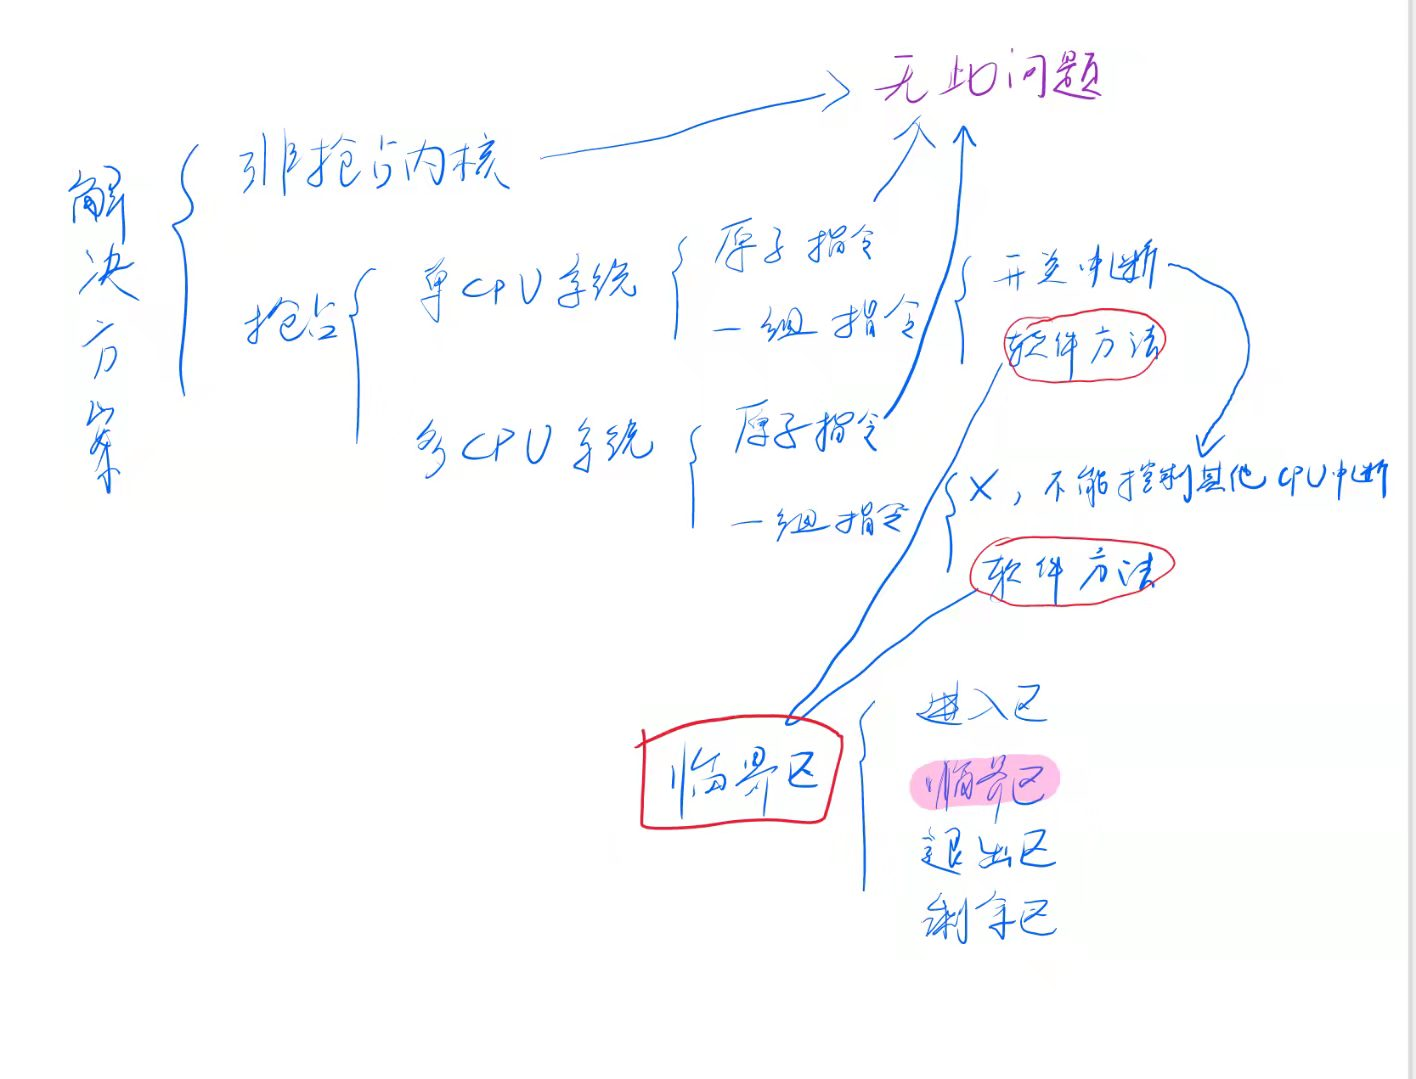 无此问题
解决方案
非抢占内核
抢占
单CPU系统
原子指令
一组指令
开关中断
软件方法
多CPU系统
原子指令
一组指令
X，不能控制其他CPU中断
软件方法
临界区
进入区
临界区
退出区
剩余区